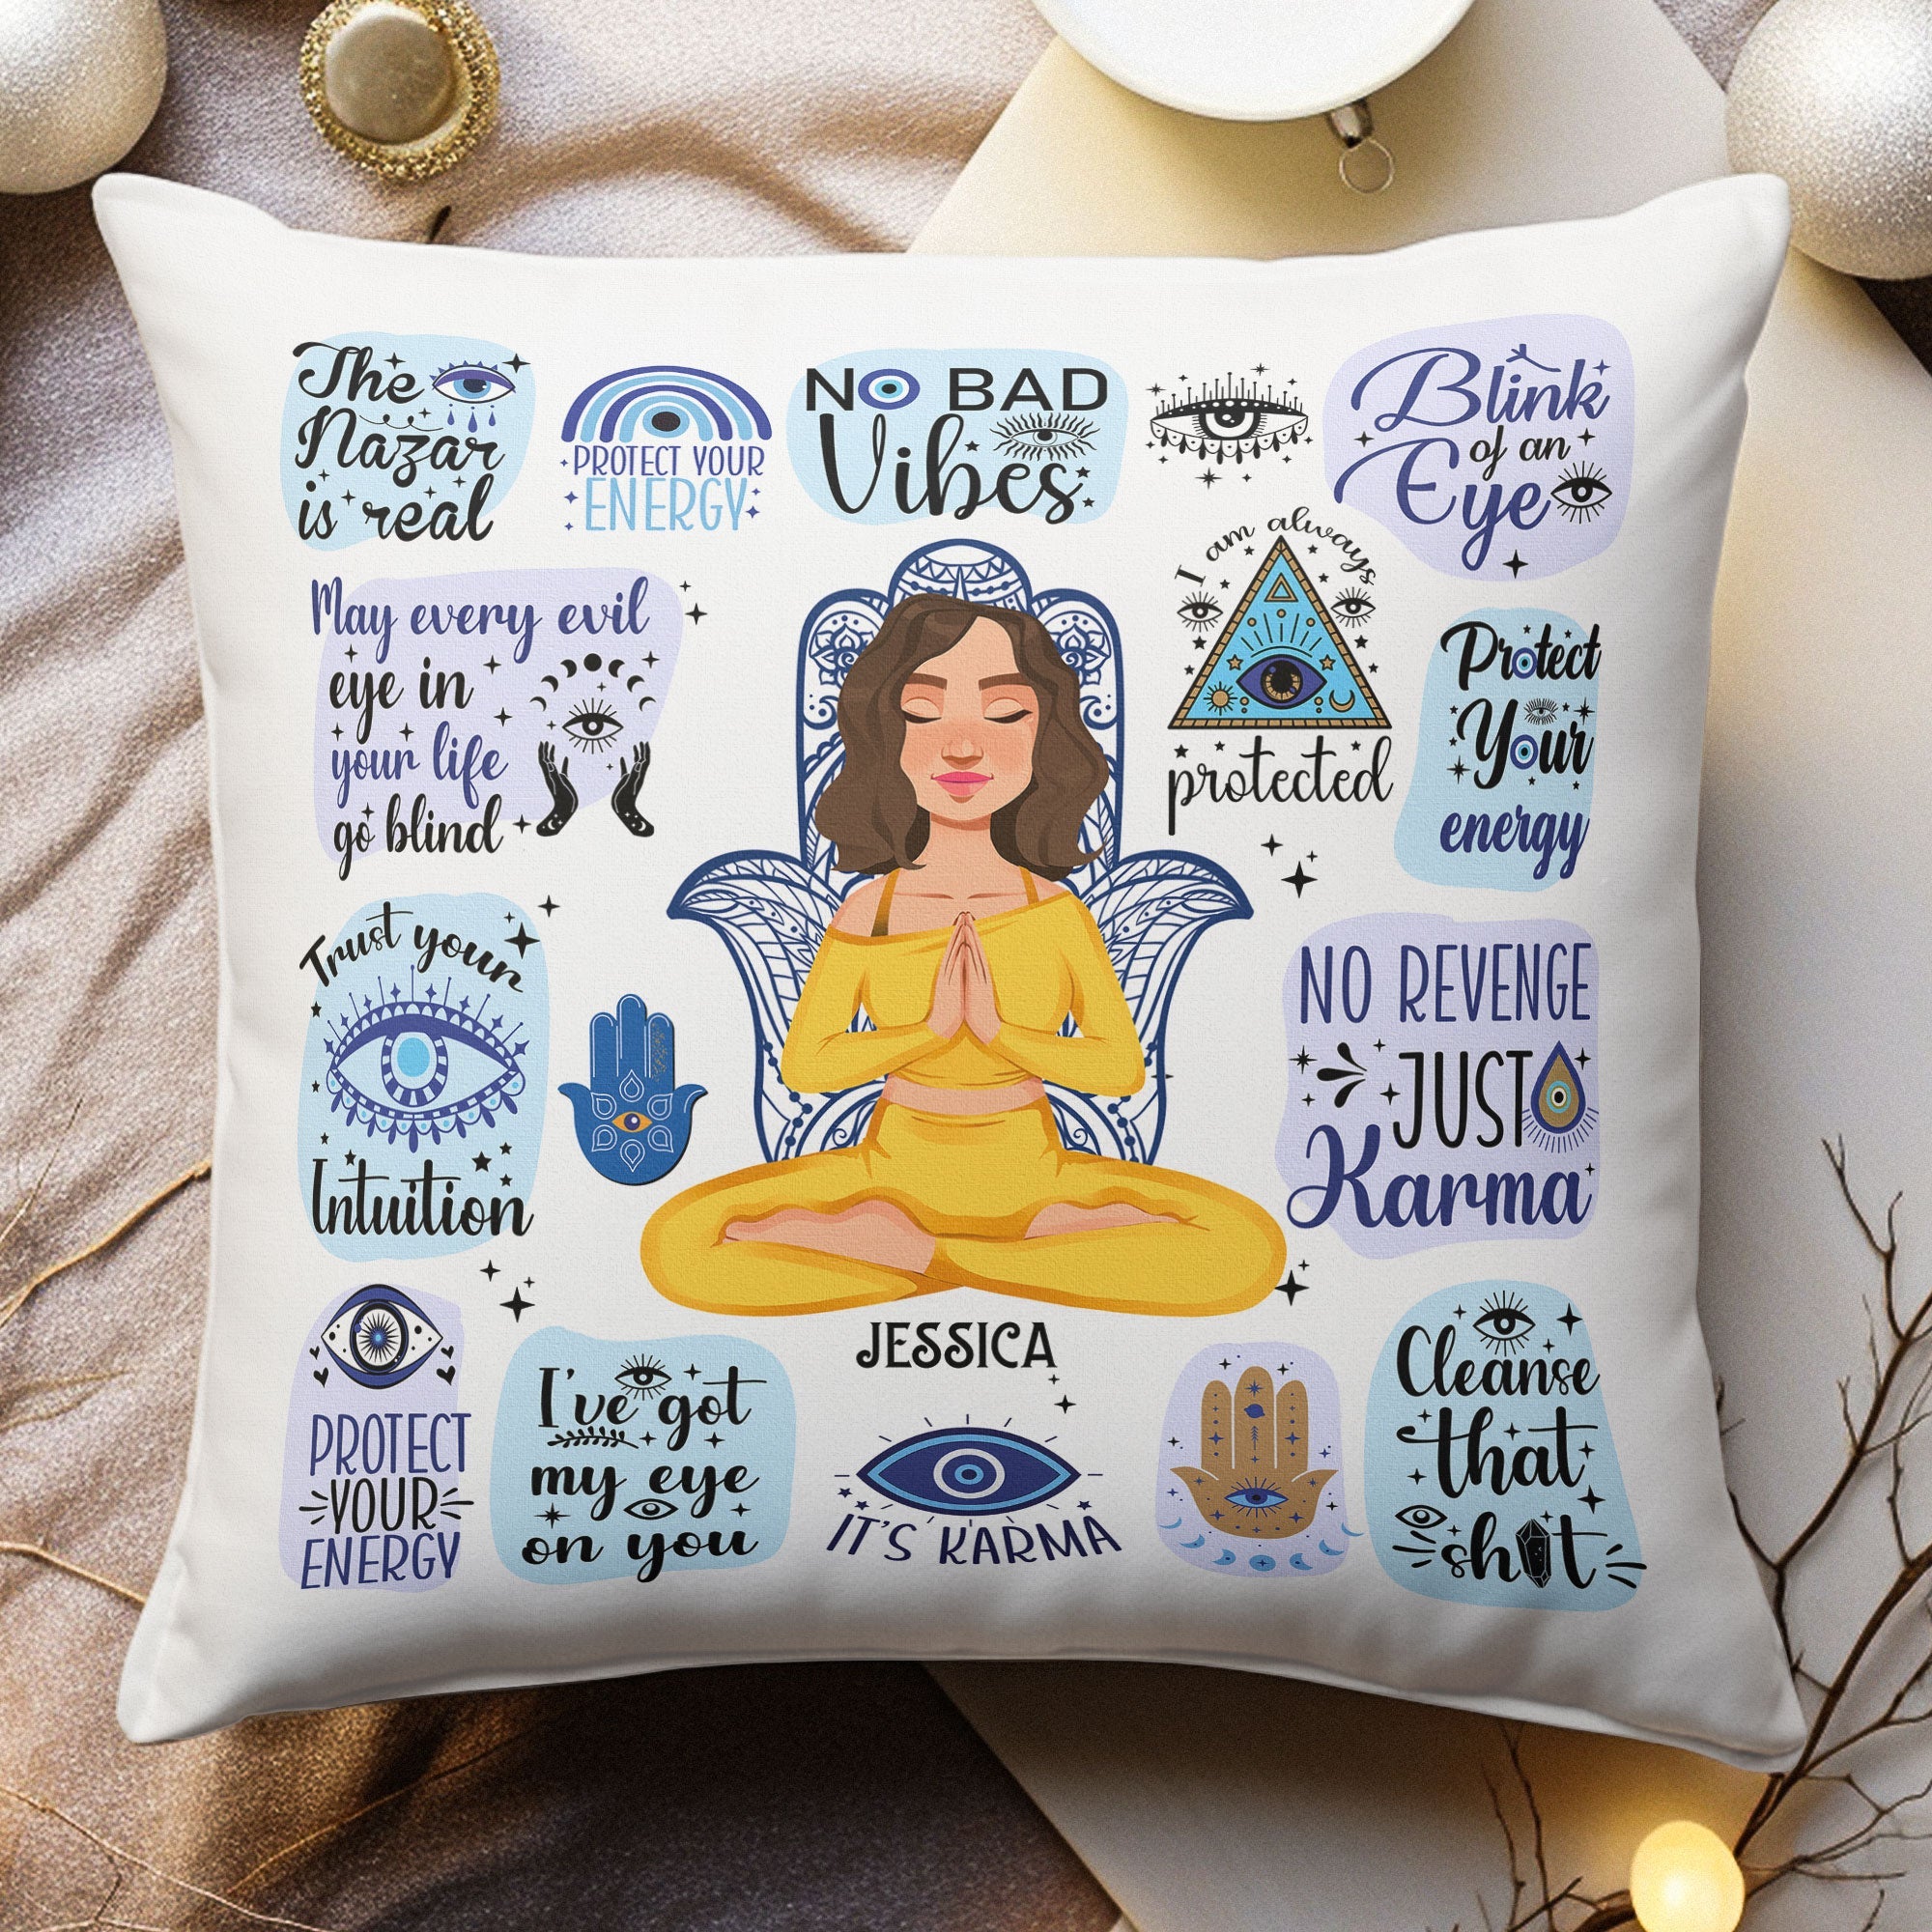 The
Nazar
is real
PROTECT YOUR
ENERGY
NO BAD
Vibes
Blink
of an
Eye
May every evil
eye in
your life
go blind
I am always
protected
Protect
Your
energy
Trust your
Intuition
NO REVENGE
JUST
Karma
JESSICA
PROTECT
YOUR
ENERGY
I've got
my eye
on you
IT'S KARMA
Cleanse
that
sh t